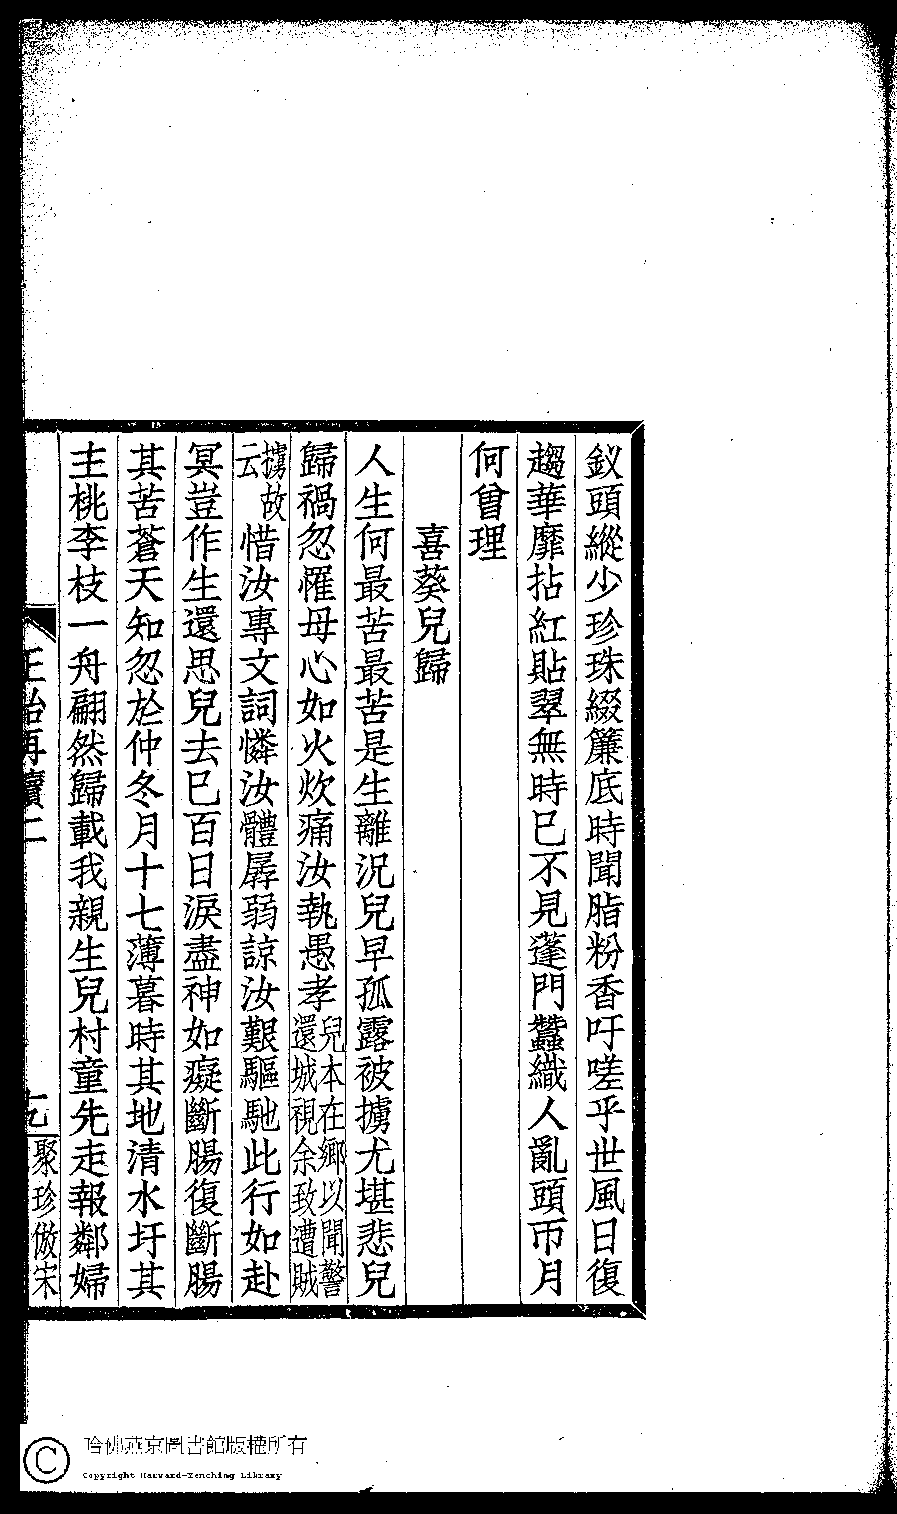 釵頭縱少珍珠綴簾底時聞脂粉香吁嗟乎世風日復
趨華靡拈紅貼翠無時已不見蓬門蠶織人亂頭帀月
何曾理
喜葵兒歸
人生何最苦最苦是生離況兒早孤露被擄尤堪悲兒
歸禍忽罹母心如火炊痛汝執愚孝兒本在鄉以聞警
還城視余致遭賊
擄故
云
惜汝專文詞憐汝體孱弱諒汝艱驅馳此行如赴
冥豈作生還思兒去已百日淚盡神如癡斷腸復斷腸
其苦蒼天知忽於仲冬月十七薄暮時其地清水圩其
主桃李枝一舟翩然歸載我親生兒村童先走報鄰婦
再續二
聚珍倣宋
哈佛燕京圖書館版權所有
Copyright Harvard-Yenching Library